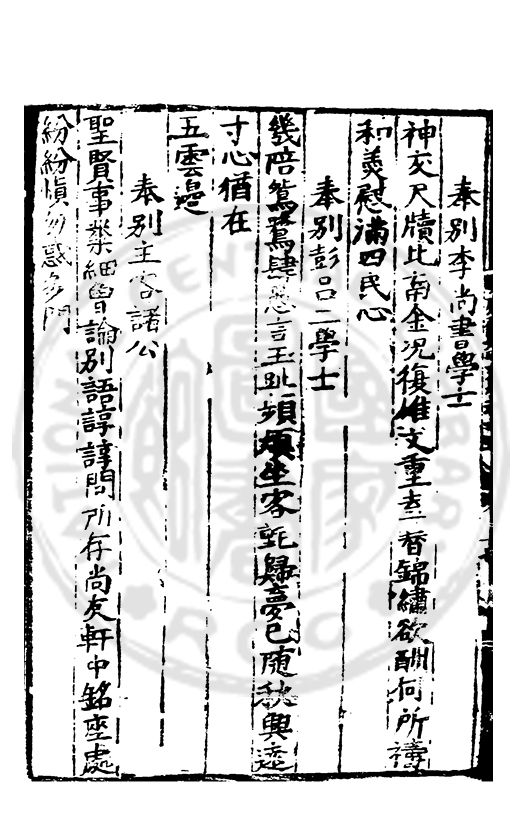 奉別李尚書學士
神交尺牘比南金況復雄文重壹暬錦繡欲酬何所禱
和羹慰滿四民心
奉別彭呂二學士
幾陪鴛鷺肆忠言玉趾頻煩坐客氊歸夢已随秋興遠
寸心猶在
五雲邊
奉別主客諸公
聖賢事業細曾論別語諄諄問所存尚友軒中銘座處
紛紛慎勿惑多門